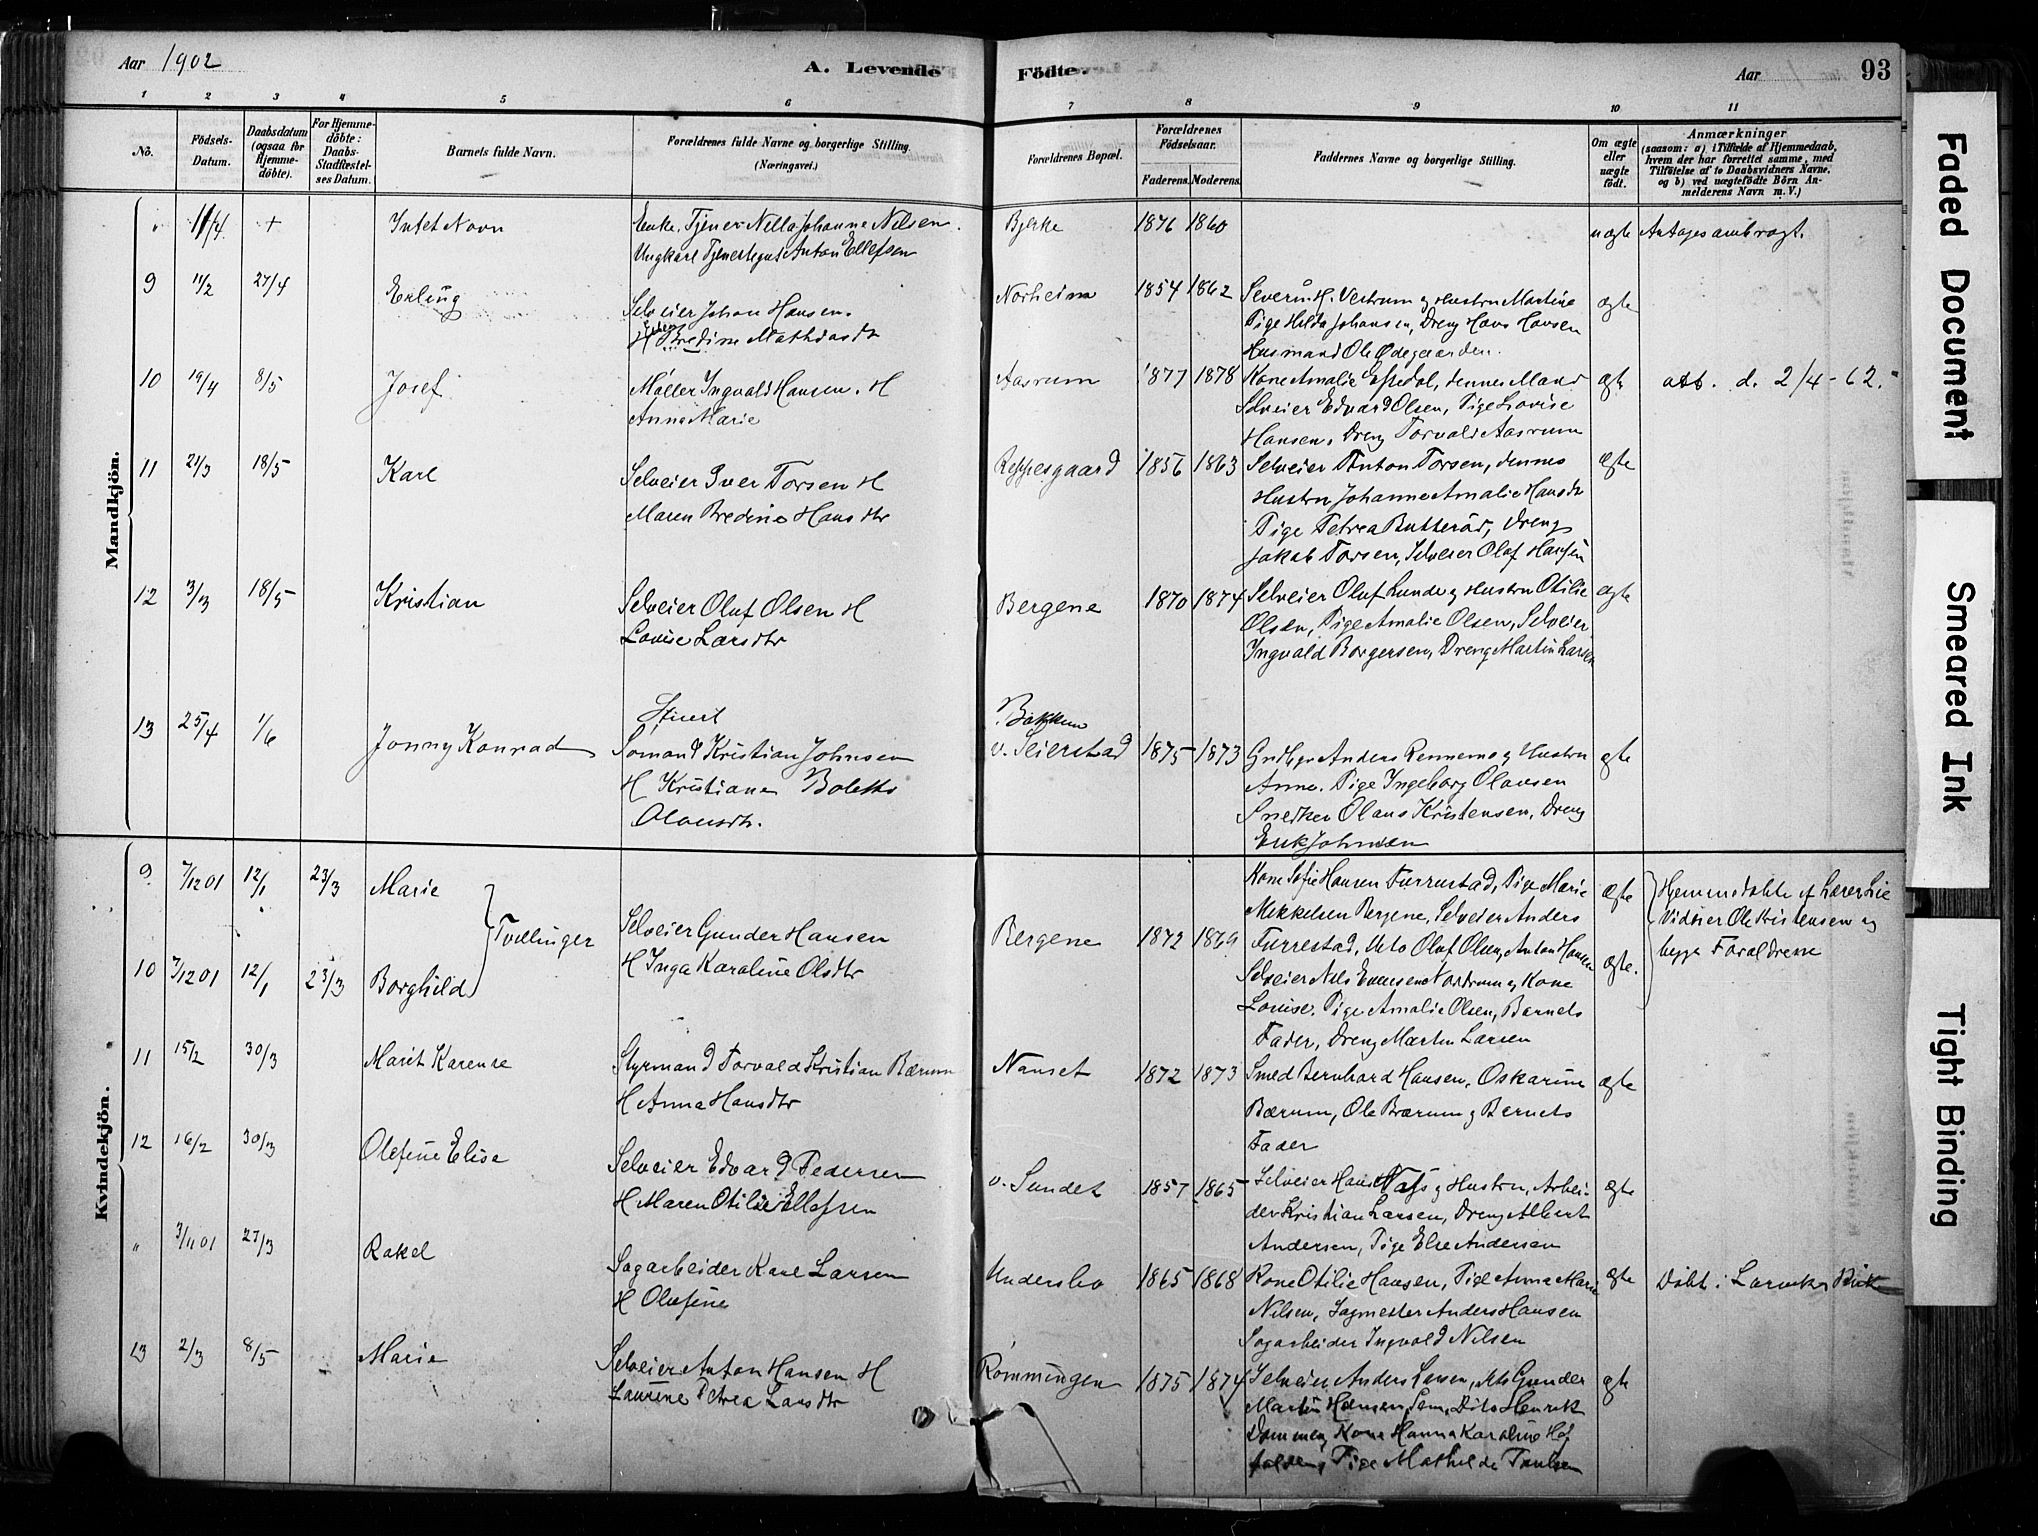 Aar 1902
A. Levende
Födte.
Aar
93
1 2 3 4 5 6 7 8 9 10 11
No.
Födsels-Datum.
Daabsdatum (ogsaa for Hjemmedöbte).
For Hjemmedöbte: Daabs-Stadfæstelses Datum.
Barnets fulde Navn.
Forældrenes fulde Navne og borgerlige Stilling. (Næringsvei.)
Forældrenes Bopæl.
Forældrenes Födselsaar.
Faderens. Moderens.
Faddernes Navne og borgerlige Stilling.
Om ægte eller uægte födt.
Anmærkninger
(saasom: a) i Tilfælde af Hjemmedaab,
hvem der har forrettet samme, med
Tilföielse af to Daabsvidners Navne,
og b) ved uægtefödte Börn An-
melderens Navn m. V.)
Mandkjön.
" 11/4 + Intet Navn
Enke, Tjener Nella Johanne Nilsen.
Ungkarl Tjenestegut Anton Ellefsen
Bjerke 1876 1860
uægte Antages ombragt.
9 11/2 27/4 Erling
Selveier Johan Hansen.
H Bredine Mathiasdr
Norheim 1854 1862
Severin H. Vestrum og Hustru Martine
Pige Hilda Johansen, Dreng Hans Hansen
Husmand Ole Ødegaarden.
ægte
10 19/4 8/5 Josef
Møller Ingvald Hansen. H
Anna Marie
Aasrum 1877 1878
Kone Amalie Espedal, dennes Mand
Selveier Edvard Olsen, Pige Lovise
Hansen, Dreng Torvald Aasrum
ægte
att. d. 2/4-62.
11 21/3 18/5 Karl
Selveier Iver Torsen H
Maren Bredine Hansdtr
Reppesgaard 1856 1863
Selveier Anton Torsen, dennes
Hustru Johanne Amalie Hansdr
Pige Petrea, Dreng
Jakob Torsen, Selveier Olaf Hansen
ægte
12 3/3 18/5 Kristian
Selveier Oluf Olsen H
Lovise Larsdtr
Bergene 1870 1874
Selveier Oluf Lunde og Hustru Otilie
Olsen, Pige Amalie Olsen, Selveier
Ingvald Borgersen, Dreng Martin Larsen
ægte
13 25/4 1/6 Jonny Konrad
Stuert
Sømand Kristian Johnsen
H Kristiane Bolette
Olausdtr.
Bakken
v. Seierstad 1875 1873
Gndbgr Anders Rennemo og Hustru
Anne. Pige Ingeborg Olausen
Snedker Olaus Kristensen, Dreng
Erik Johnsen
ægte
Kvindekjön.
9 7/12 01 12/1 23/3 Marie
Tvillinger
10 7/12 01 12/1 23/3 Borghild
Selveier Gunder Hansen
H Inga Karoline Olsdtr
Bergene 1872 1869
Kone Sofie Hansen Furrestad, Pige Marie
Mikkelsen Bergene, Selveier Anders
Furrestad, dito Oluf Olsen, Anton Hansen
Selveier Nils Evensen Nordrum og Kone
Louise. Pige Amalie Olsen, Barnets
Fader, Dreng Martin Larsen
ægte
ægte.
Hjemmedøbte af Lærer Lie
Vidner Ole Kristensen og
begge Forældrene
11 15/2 30/3 Marit Karense
Styrmand Torvald Kristian Bærum
H Anna Hansdtr
Nanset 1872 1873
Smed Bernhard Hansen, Oskarine
Bærum, Ole Bærum og Barnets
Fader
ægte
12 16/2 30/3 Olefine Elise
Selveier Edvard Pedersen
H Maren Otilie Ellefsen
v. Sundet 1857 1865
Selveier Hans Næss og Hustru, Arbei-
der Kristian Larsen, Dreng Albert
Andersen, Pige Else Andersen
ægte
" 3/11 01 27/3 Rakel
Sagarbeider Karl Larsen
H Olefine
Undersbo 1865 1868
Kone Otilie Hansen, Pige Anna Marie
Nilsen, Sagmester Anders Hansen
Sagarbeider Ingvald Nilsen
ægte
Døbt i Larviks Kirke
13 2/3 8/5 Marie
Selveier Anton Hansen H
Laurine Petrea Larsdtr
Rømmingen 1875 1874
Selveier Anders Larsen, dito Gunder
Martin Hansen Sem, Dito Henrik
Dammen, Kone Hanna Karoline
Pige Mathilde Paulsen
ægte
Faded Document
Smeared Ink
Tight Binding